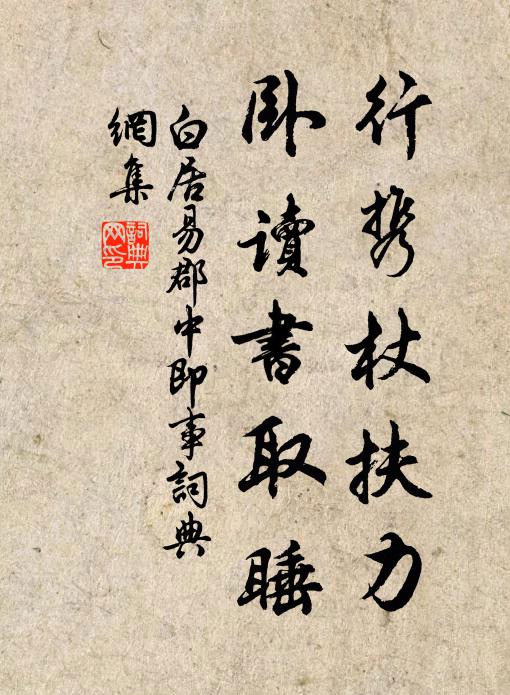 行携杖扶力
卧讀書取睡
白居易郡中即事詞典
網集
詞典
网印